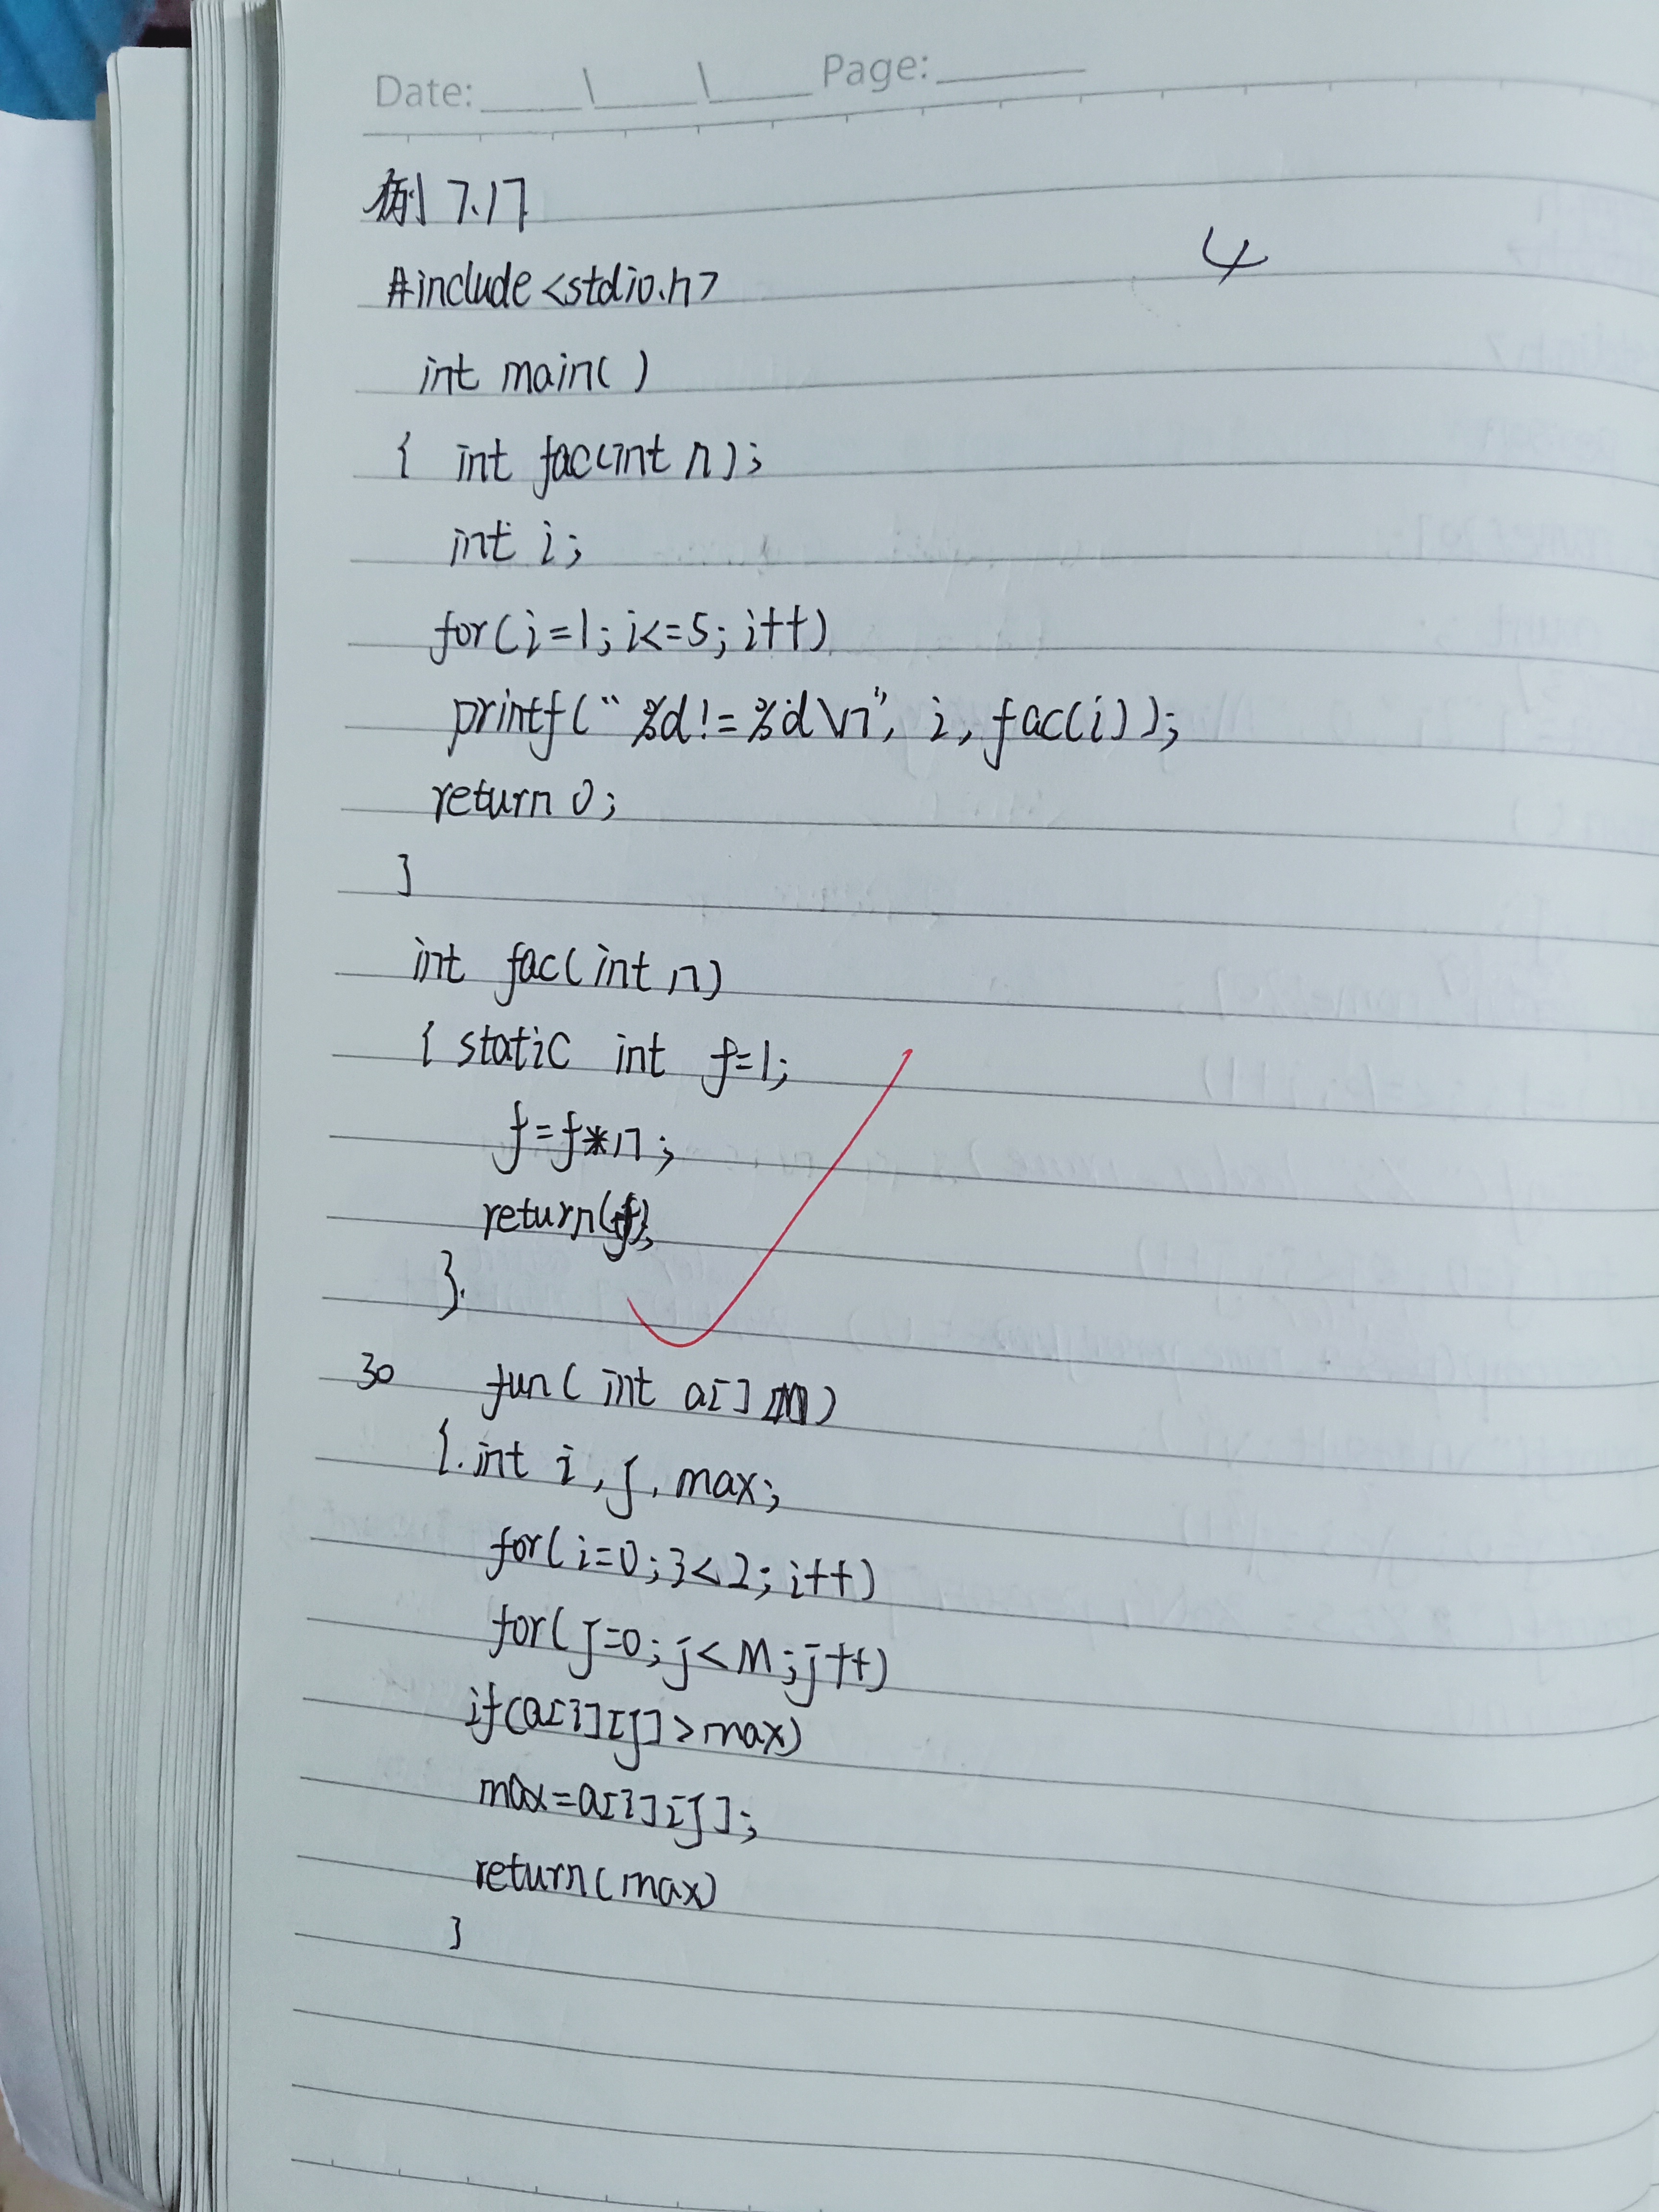 Date: ____\____\____ Page: ______
例 7.17
4
#include<stdio.h>
int main( )
{ int fac(int n);
int i;
for(i=1; i<=5; i++)
printf("%d!=%d\n", i, fac(i));
return 0;
}
int fac(int n)
{ static int f=1;
f=f*n;
return(f);
}.
30 fun( int a[] [M])
{. int i, j, max;
for(i=0; 3<2; i++)
for(j=0; j<M; j++)
if(a[i][j]>max)
max=a[i][j];
return(max)
}